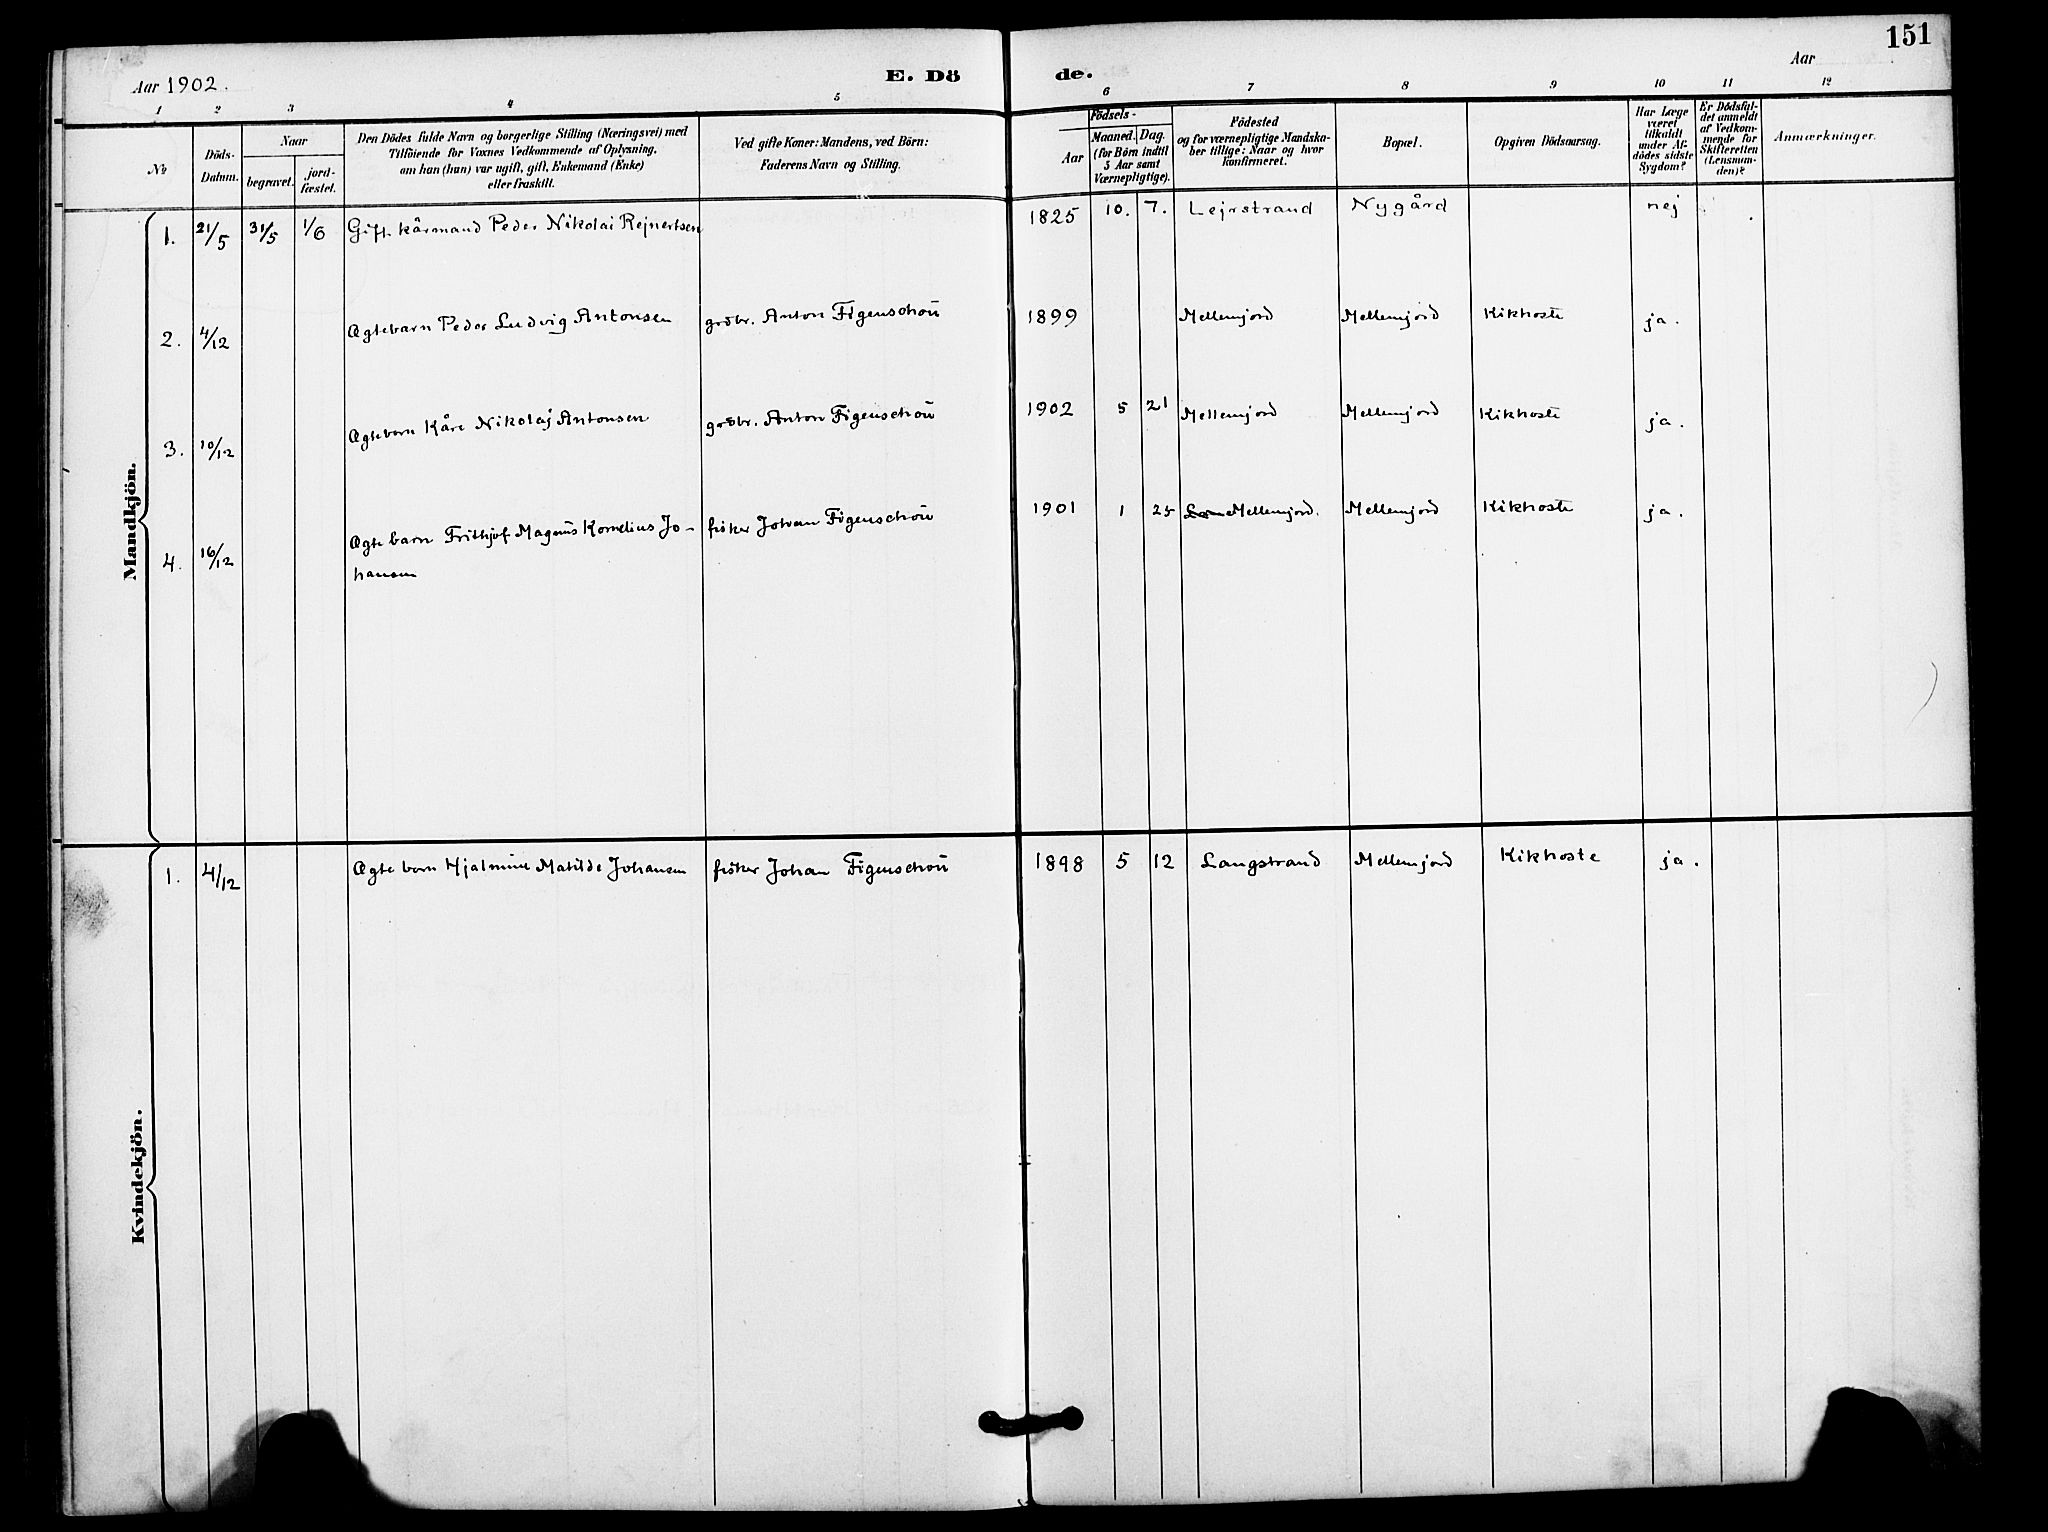 151
Aar 1902.
E. Dö
de.
Aar
1 2 3 4 5 6 7 8 9 10 11 12
№
Döds-
Datum.
Naar
begravet.
jord-
fæstet.
Den Dödes fulde Navn og borgerlige Stilling (Næringsvei) med
Tilföiende for Voxnes Vedkommende af Oplysning,
om han (hun) var ugift, gift, Enkemand (Enke)
eller fraskilt.
Ved gifte Koner: Mandens, ved Börn:
Faderens Navn og Stilling.
Födsels-
Aar
Maaned. Dag.
(for Börn indtil
5 Aar samt
Værnepligtige).
Födested
og for værnepligtige Mandska-
ber tillige: Naar og hvor
konfirmeret.
Bopæl.
Opgiven Dödsaarsag.
Har Læge
været
tilkaldt
under Af-
dödes sidste
Sygdom?
Er Dödsfal-
det anmeldt
af Vedkom-
mende for
Skifteretten
(Lensman-
den)?
Anmærkninger.
Mandkjön.
1. 21/5 31/5 1/6 Gift. kårmand Peder Nikolai Rejnertsen 1825 10. 7. Lejrstrand Nygård nej
2. 4/12 Ægtebarn Peder Ludvig Antonsen grdbr. Anton Figenschou 1899 Mellemjord Mellemjord Kikhoste ja.
3. 10/12 Ægtebarn Kåre Nikolaj Antonsen grdbr. Anton Figenschou 1902 5 21 Mellemjord Mellemjord Kikhoste ja.
4. 16/12 Ægte barn Frithjof Magnus Kornelius Jo- fisker Johan Figenschou 1901 1 25 Mellemjord. Mellemjord Kikhoste ja.
hansen
Kvindekjön.
1. 4/12 Ægte barn Hjalmine Matilde Johansen fisker Johan Figenschou 1898 5 12 Langstrand Mellemjord Kikhoste ja.